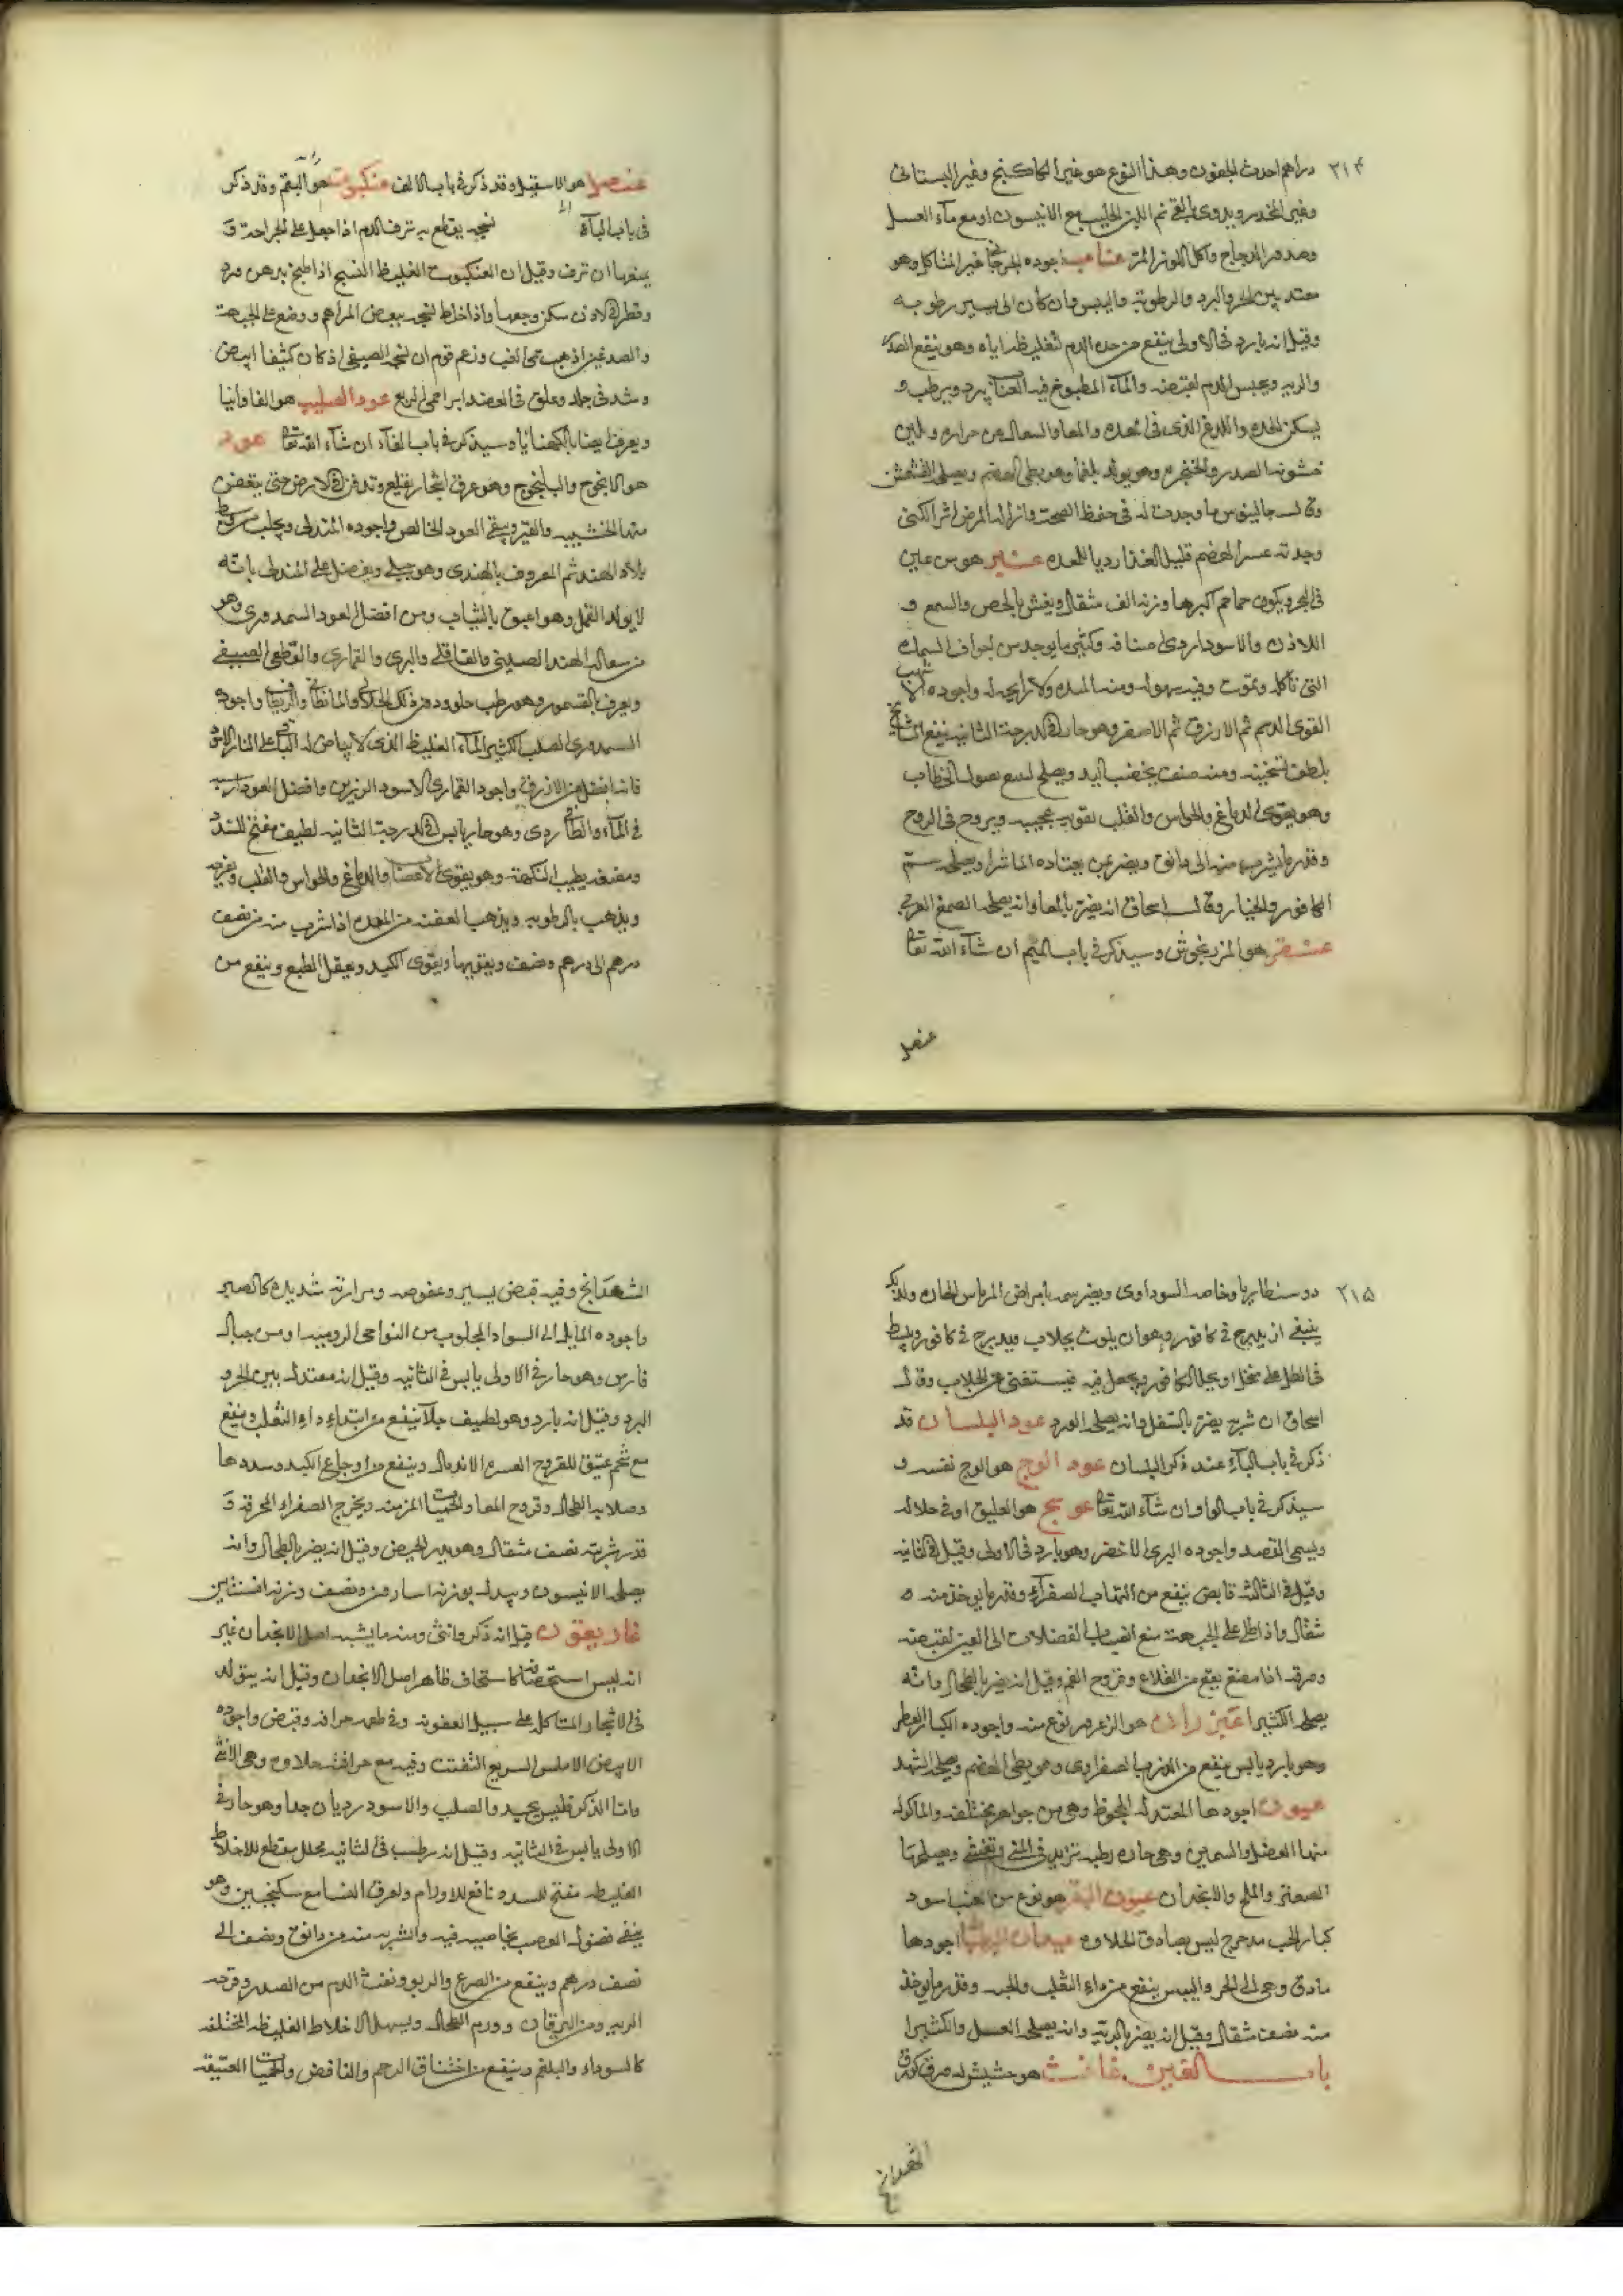 ٣١٤
دراهم احدث الجنون وهذا النوع هو غير الكاكنج وغير البستانى
وغير المخدر ويداوى بالقئ ثم اللبن الحليب مع الانيسون او مع ماء العسل
وصدور الدجاج واكل اللوز المر عناب اجوده الجرجانى غير المتاكل وهو
معتدل بين الحر والبرد والرطوبة واليبس وان كان الى يسير رطوبه
وقيل انه بارد فى الاولى ينفع من حدة الدم لتغليظه اياه وهو ينفع الصدر
والريه ويحبس الدم لقبضه والماء المطبوخ فيه العناب يبرد ويرطب و
يسكن الحدة واللدغ الذى فى المعده والمعا والسعال من حرارة ويلين
خشونة الصدر والحنجرة وهو يولد بلغما وهو بطى الهضم ويصلحه الكشمش
وقال جالينوس ما وجدت له فى حفظ الصحة وازالة المرض اثرا لكنى
وجدته عسر الهضم قليل الغذا رديا للمعده عنبر هو من عين
فى البحر ويكون جماجم اكبرها وزنه الف مثقال ويغش بالجص والشمع و
اللاذن والاسود اردى اصنافه وكثيرا ما يوجد من اجواف السمك
التى تاكله وتموت وفيه سهوله ومنه المنده ولا رايحة له واجوده الاشهب
القوى الدسم ثم الازرق ثم الاصفر وهو حار فى الدرجة الثانيه ينفع المشايخ
بلطف تسخينه ومنه صنف يخضب اليد ويصلح لتتبع نصول الخضاب
وهو يقوى الدماغ والحواس والقلب تقوية عجيبه ويزيد فى الروح
وقدر ما يشرب منه الى دانق ويضر من يعتاده الماشرا ويصلحه شم
الكافور والخيار وقال اسحاق انه يضر بالمعا وانه يصلحه الصمغ العربى
عنقز هو المرزنجوش وسيذكر فى باب الميم ان شاء الله تعالى
عنصل
عنصل هو الاسقيل وقد ذكر فى باب الالف عنكبوت هو البقم وقد ذكر
فى باب الباء نسجه يقطع به نزف الدم اذا جعل على الجراحة و
يمنعها ان ترف وقيل ان العنكبوت الغليظ النسج اذا طبخ بدهن ورد
وقطر فى الاذن سكن وجعها واذا خلط نسجه ببعض المراهم ووضع على الجبهة
والصدغين اذهب حمى الغب وزعم قوم ان نسجه الصيفى اذ كان كثيفا ابيض
وشد فى جلد وعلق فى العضد ابرا حمى الربع عود الصليب هو الفاوانيا
ويعرف ايضا بالكهنيانا وسيذكر فى باب الفاء ان شاء الله تعالى عود
هو الانجوج والبلنجوج وهو عروق اشجار تقلع وتدفن فى الارض حتى يتعفن
منها الخشبيه والقشر ويبقى العود الخالص واجوده المندلى ويجلب من وسط
بلاد الهند ثم المعروف بالهندى وهو جبلى ويفضل على المندلى بانه
لا يولد القمل وهو اعبق بالثياب ومن افضل العود السمندورى وهو
من سفالة الهند الصينى والقاقلى والبرى والقمارى والقطعى الصيفى
ويعرف بالقسمور وهو رطب حلو ودون ذلك الجلالى والمانطائى والريطائى واجود
السمندورى الصلب الكثير الماء الغليظ الذى لا بياض له الباقى على النار الازرق
فانه افضل من الازرق واجود القمارى الاسود الرزين وافضل العود ارسبه
فى الماء والطافى ردى وهو حار يابس فى الدرجة الثانيه لطيف مفتح للسدد
ومضغه يطيب النكهة وهو يقوى الاعضا والدماغ والحواس والقلب ويفرحه
ويذهب بالرطوبه ويذهب العفنه من المعده اذا شرب منه من نصف
درهم الى درهم ونصف ويقويها ويقوى الكبد ويعقل الطبع وينفع من
٣١٥
دوسنطاريا وخاصة السوداوى ويضر شمه بامراض الراس الحارة ولذلك
ينبغى ان يدبرج فى كافور وهو ان يلوث بجلاب ويدبرج فى كافور ويبسط
فى الظل على منخل او يحل الكافور ويجعل فيه فيستغنى عن الجلاب وقال
اسحاق ان شربه يضر بالسفل وانه يصلحه الورد عود البلسان قد
ذكر فى باب الباء عند ذكر البلسان عود الوج هو الوج نفسه و
سيذكر فى باب الواو ان شاء الله تعالى عوسج هو العليق او فى حلاله
ويسمى القصد واجوده البرى الاخضر وهو بارد فى الاولى وقيل فى الثانيه
وقيل فى الثالثه قابض ينفع من التهاب الصفراء وقدر ما يوخذ منه ٥
مثقال واذا طلى على الجبهة منع انصباب الفضلات الى العين لقبضه
وورقه اذا مضغ ينفع من القلاع وقروح الفم وقيل انه يضر بالطحال وانه
يصلحه الكثيرا عيزران هو الزعرور نوع منه واجوده الكبار العطر
وهو بارد يابس ينفع من الذرب الصفراوى وهو بطى الهضم ويصلحه الشهد
عيون اجودها المعتدلة الجحوظ وهى من جواهر مختلفه والماكول
منها العضل والسمين وهى حاره رطبه تزيد فى المنى وتغثى ويصلحها
الصعتر والملح والانجدان عيون البقر هو نوع من العنب اسود
كبار الحب مدحرج ليس بصادق الحلاوه عيدان البطباط اجودها
مادق وهى الى الحر واليبس ينفع من داء الثعلب والجرب وقدر ما يوخذ
منه نصف مثقال وقيل انه يضر بالريه وانه يصلحه العسل والكثيرا
باب الغين غافث هو حشيش له ورق كورق
الشهدانج
الشهدانج وفيه قبض يسير وعفوصه ومرارته شديده كالصبر
واجوده المايل الى السواد المجلوب من النواحى الروميه او من جبال
فارس وهو حار فى الاولى يابس فى الثانيه وقيل انه معتدل بين الحر و
البرد وقيل انه بارد وهو لطيف جلا ينفع من ابتداء داء الثعلب وينفع
مع شحم عتيق للقروح العسرة الاندمال وينفع من اوجاع الكبد وسددها
وصلابة الطحال وقروح المعا والحميات المزمنه ويخرج الصفراء المحرقه و
قدر شربته نصف مثقال وهو يدر الحيض وقيل انه يضر بالطحال وانه
يصلحه الانيسون وبدله بوزنه اسارون ونصف وزنه افسنتين
غاريقون قيل انه ذكر وانثى ومنه ما يشبه اصل الانجدان غير
انه ليس استحصافه كاستحصاف ظاهر اصل الانجدان وقيل انه يتولد
فى الاشجار المتاكله على سبيل العفونه وفى طعمه حرافه وقبض واجوده
الابيض الاملس السريع التفتت وفيه مع حرافته حلاوه وهى الانثى
واما الذكر فليس بجيد والصلب والاسود رديان جدا وهو حار فى
الاولى يابس فى الثانيه وقيل انه رطب فى الثانيه محلل مقطع للاخلاط
الغليظه مفتح للسدد نافع للاورام ولعرق النسا مع سكنجبين وهو
ينقى فضول العصب بخاصيه فيه والشربه منه من دانق ونصف الى
نصف درهم وينفع من الصرع والربو ونفث الدم من الصدر وقرحة
الريه ومن اليرقان وورم الطحال ويسهل الاخلاط الغليظه المختلفه
كالسوداء والبلغم وينفع من اختناق الرحم والنافض والحميات العتيقه